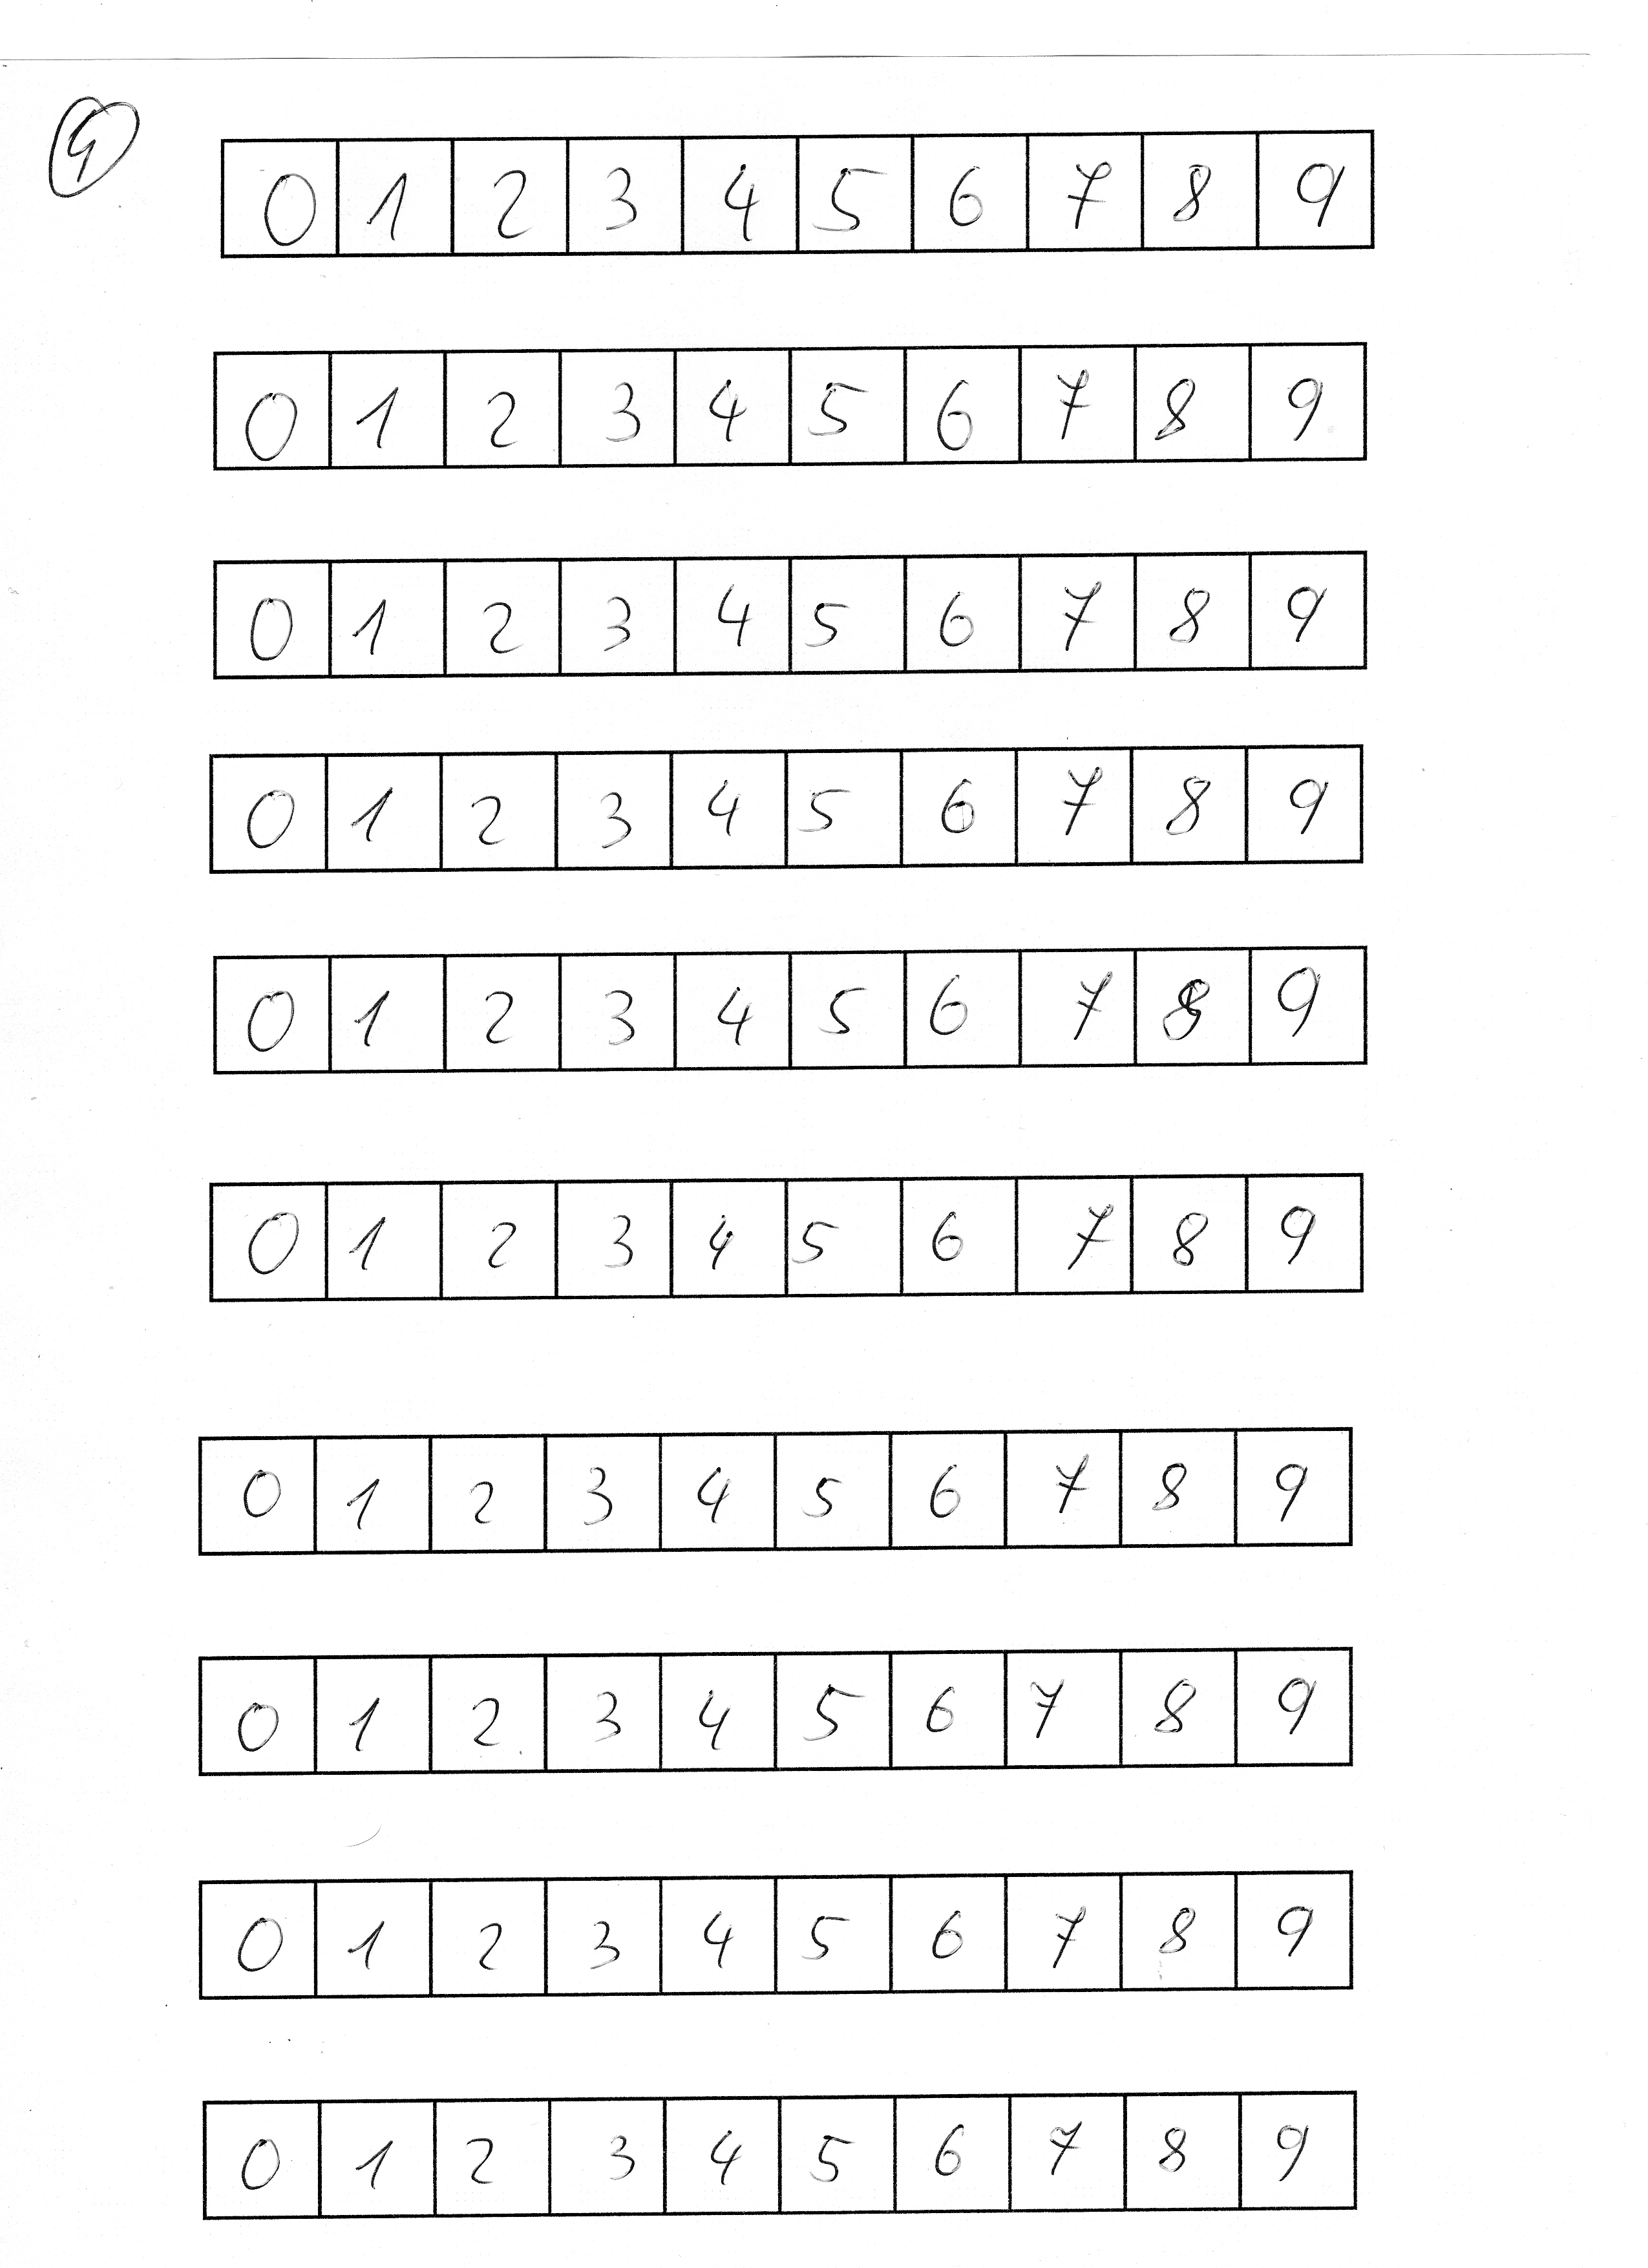 0 1 2 3 4 5 6 7 8 9
0 1 2 3 4 5 6 7 8 9
0 1 2 3 4 5 6 7 8 9
0 1 2 3 4 5 6 7 8 9
0 1 2 3 4 5 6 7 8 9
0 1 2 3 4 5 6 7 8 9
0 1 2 3 4 5 6 7 8 9
0 1 2 3 4 5 6 7 8 9
0 1 2 3 4 5 6 7 8 9
0 1 2 3 4 5 6 7 8 9